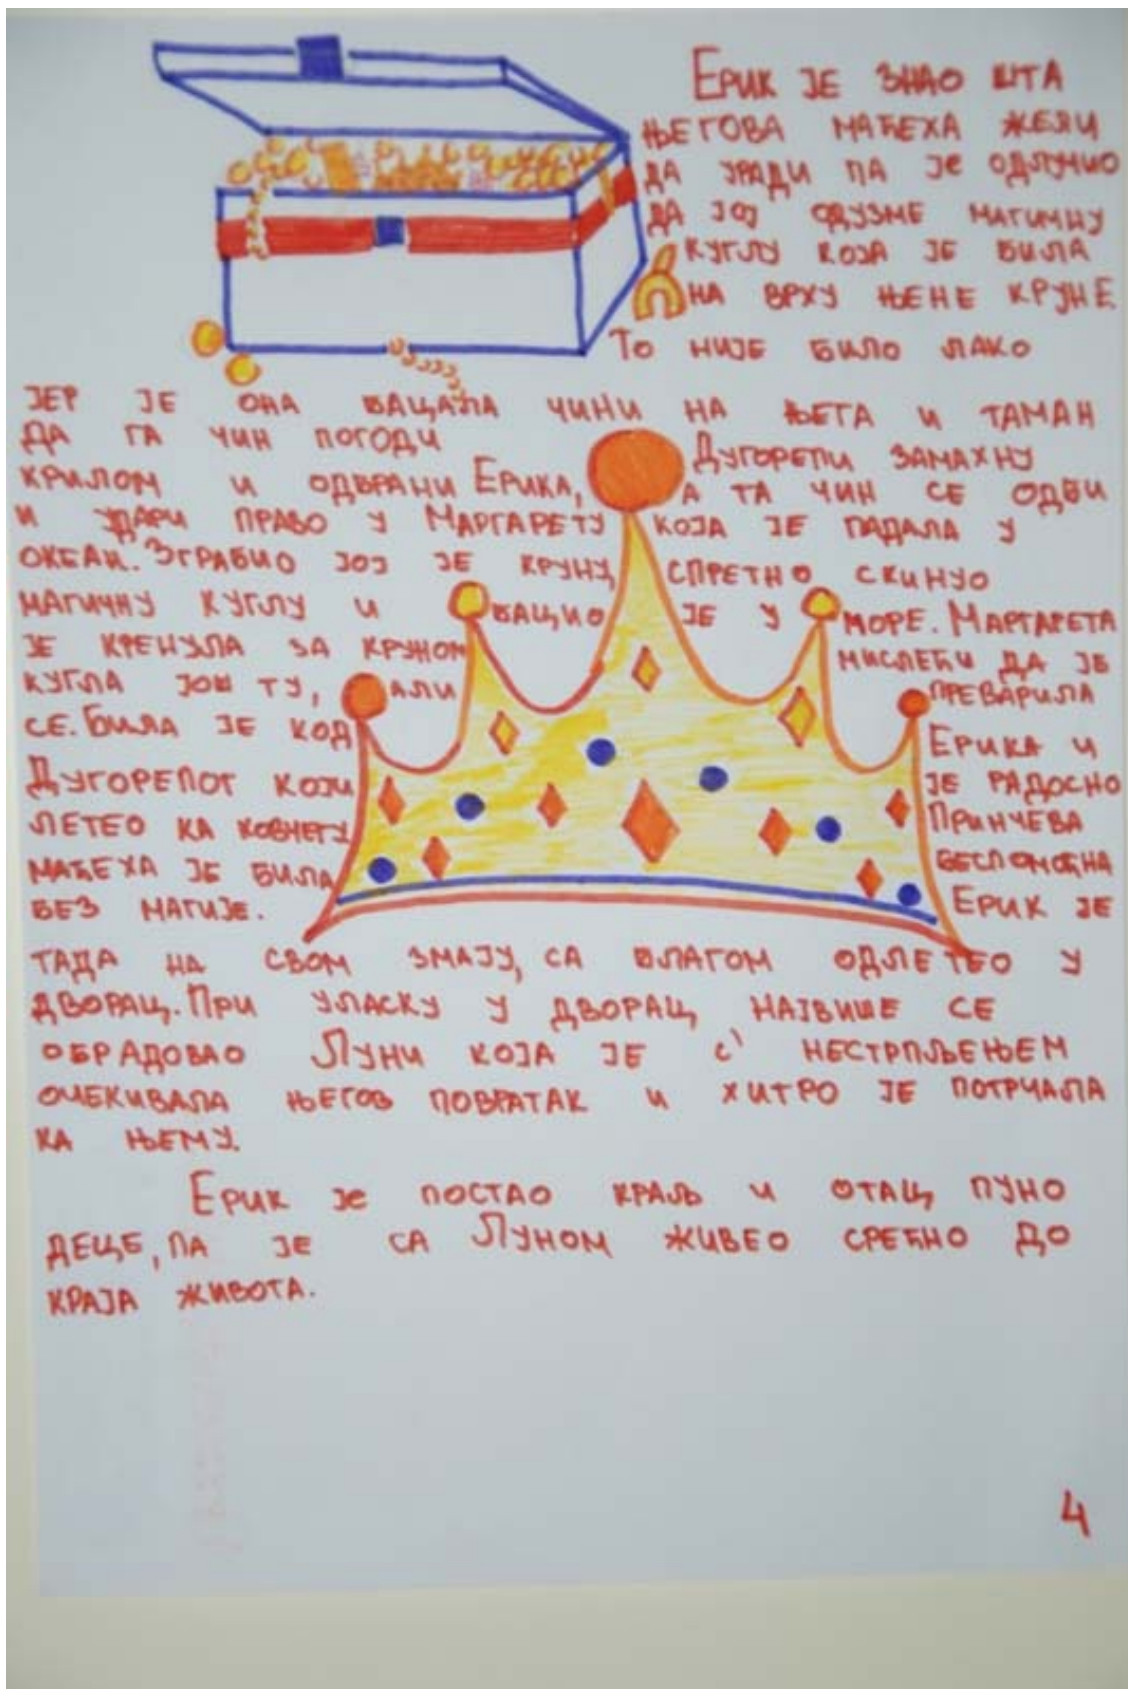 Ерик је знао шта
његова маћеха жели
да уради па је одлучио
да јој одузме магичну
куглу која је била
на врху њене круне.
То није било лако
јер је она бацала чини на њега и таман
да га чин погоди Дугорепи замахну
крилом и одбрани Ерика, а та чин се одби
и удари право у Маргарету која је падала у
океан. Зграбио јој је круну, спретно скинуо
магичну куглу и бацио је у море. Маргарета
је кренула за круном мислећи да је
кугла још ту, али преварила
се. Била је код Ерика и
Дугорепог који је радосно
летео ка ковчегу Принчева
маћеха је била беспомоћна
без магије. Ерик је
тада на свом змају, са благом одлетео у
дворац. При уласку у дворац највише се
обрадовао Луни која је с' нестрпљењем
очекивала његов повратак и хитро је потрчала
ка њему.
Ерик је постао краљ и отац пуно
деце, па је са Луном живео срећно до
краја живота.
4